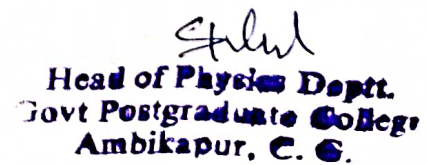 Head of Physics Deptt.
Govt Postgraduate College
Ambikapur, C. G.